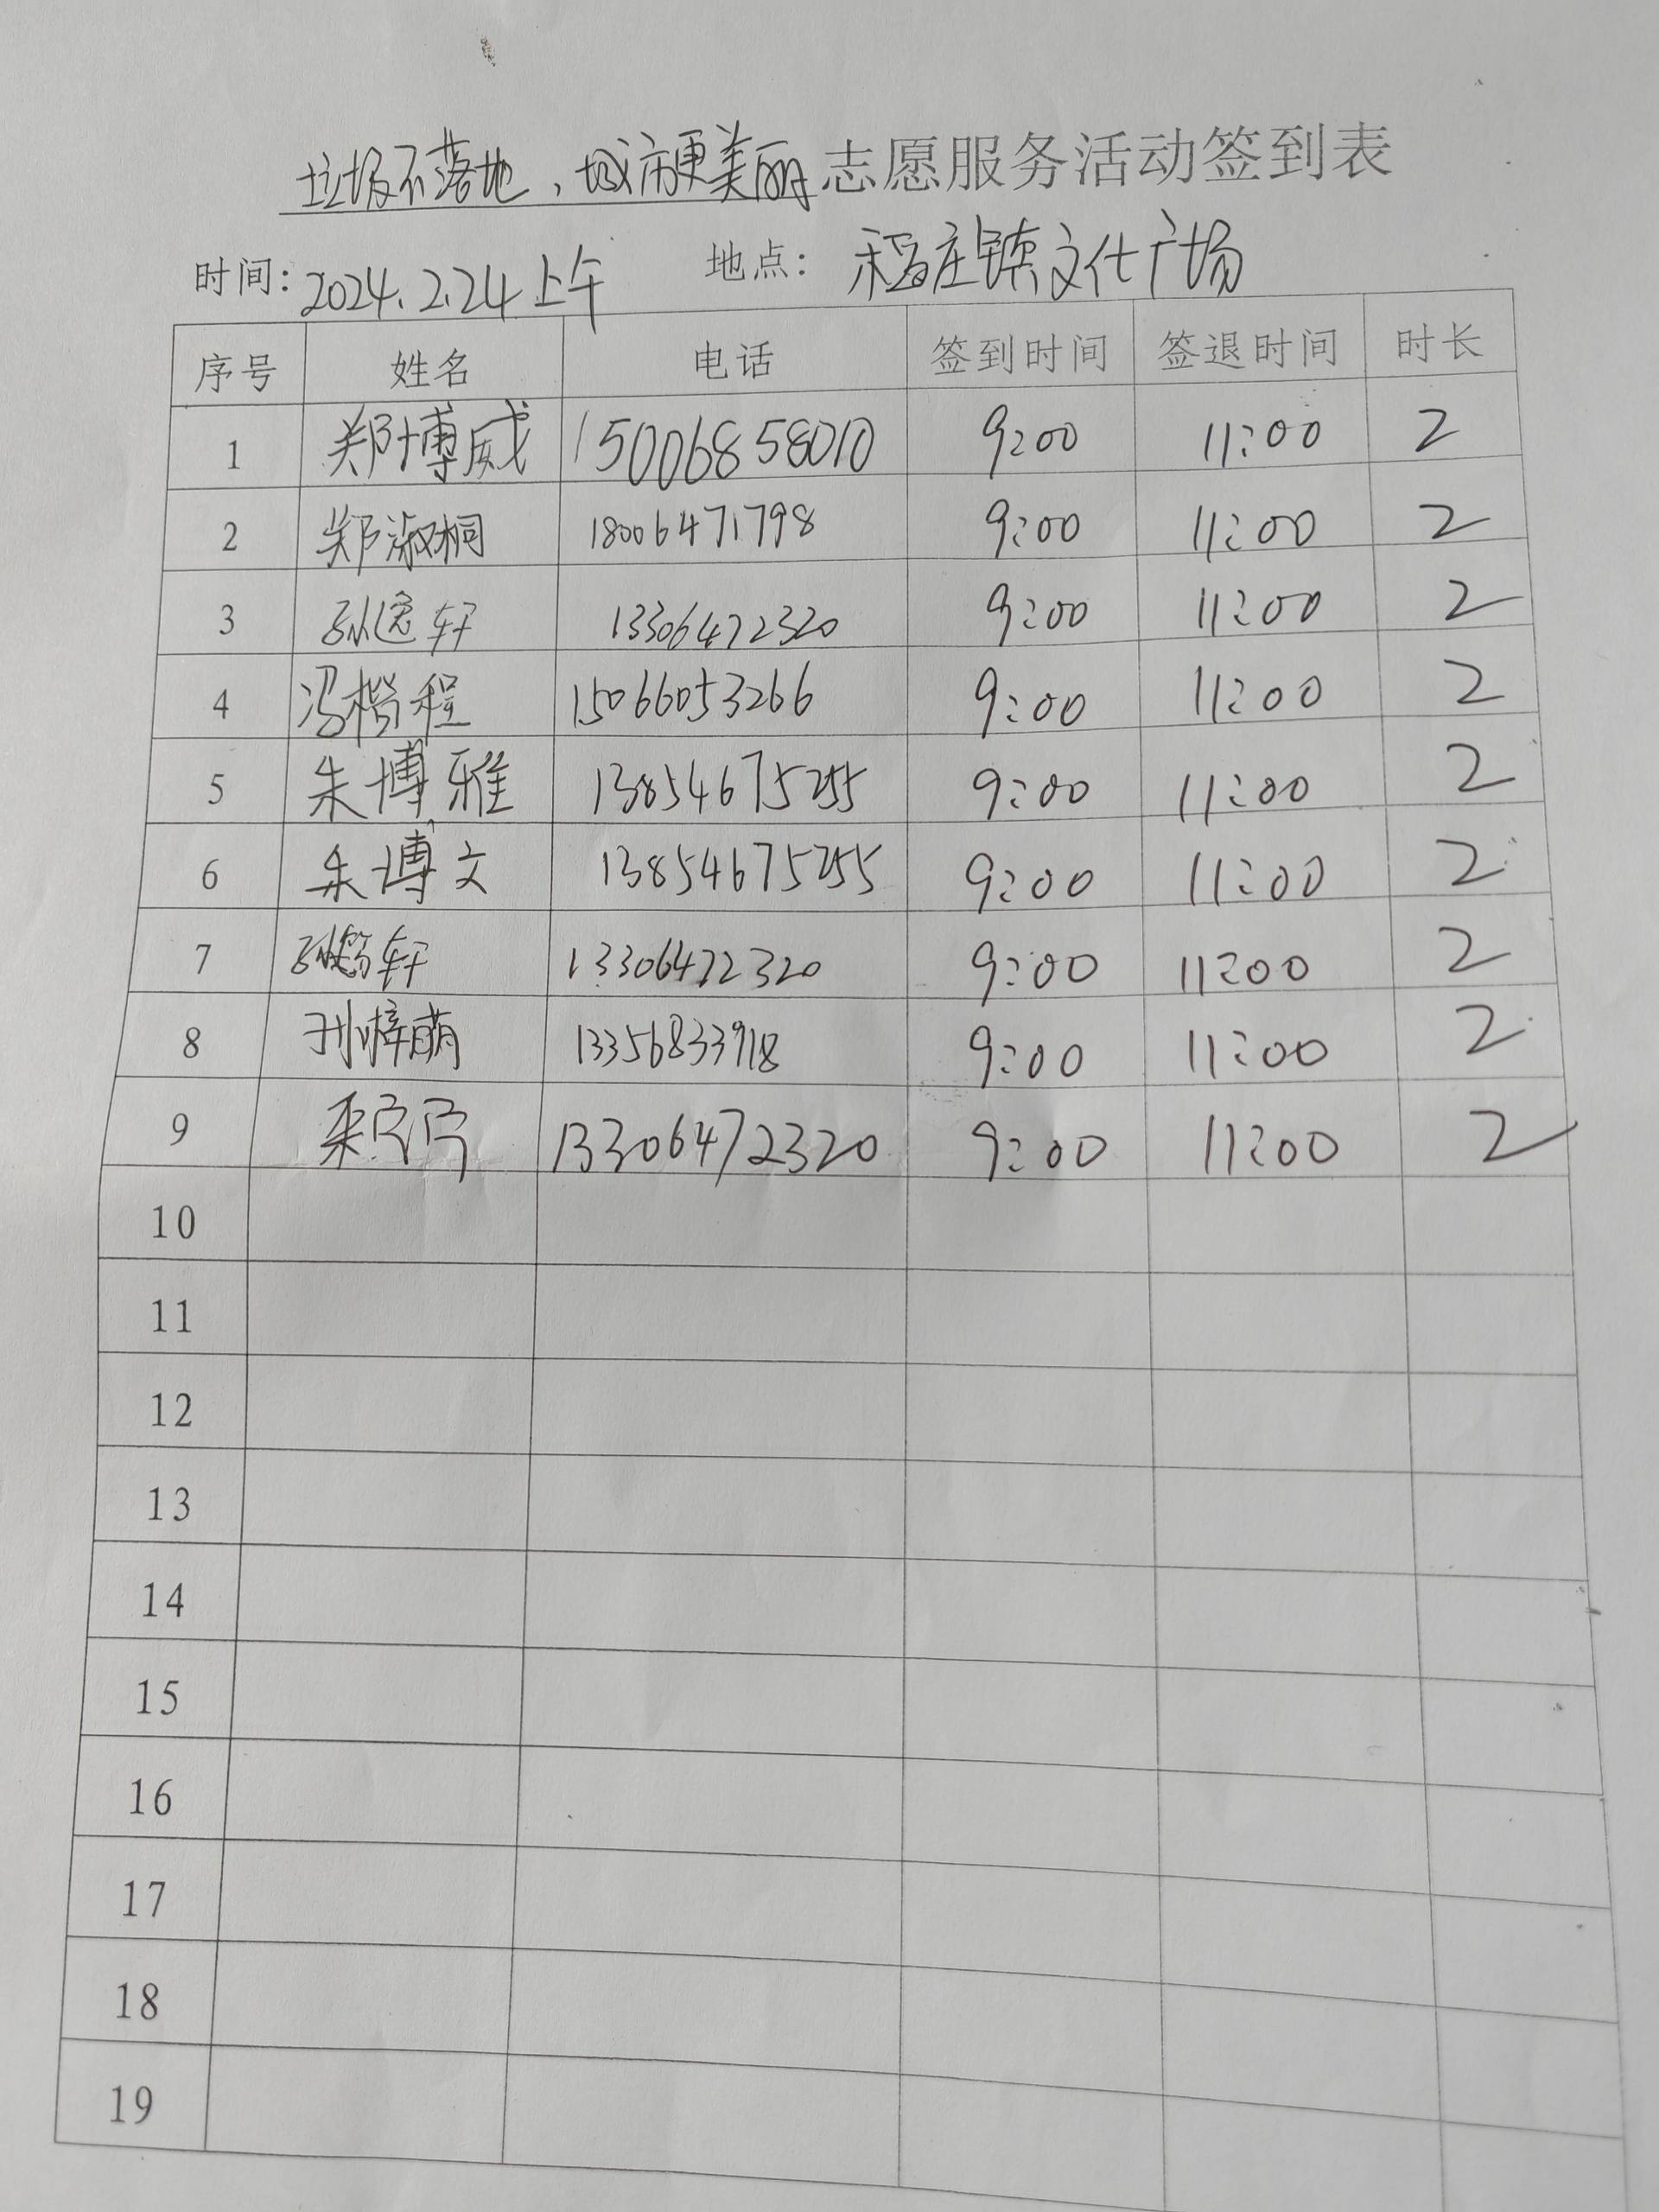 垃圾不落地，城市更美丽志愿服务活动签到表
时间：2024.2.24上午 地点：稻庄镇文化广场
序号 姓名 电话 签到时间 签退时间 时长
1 郑博威 15006858010 9:00 11:00 2
2 郑淑桐 18006471798 9:00 11:00 2
3 孙逸轩 13306472320 9:00 11:00 2
4 冯楷程 15066053266 9:00 11:00 2
5 朱博雅 13854675255 9:00 11:00 2
6 朱博文 13854675255 9:00 11:00 2
7 孙 轩 13306472320 9:00 11:00 2
8 刘梓萌 13356833918 9:00 11:00 2
9 13306472320 9:00 11:00 2
10
11
12
13
14
15
16
17
18
19